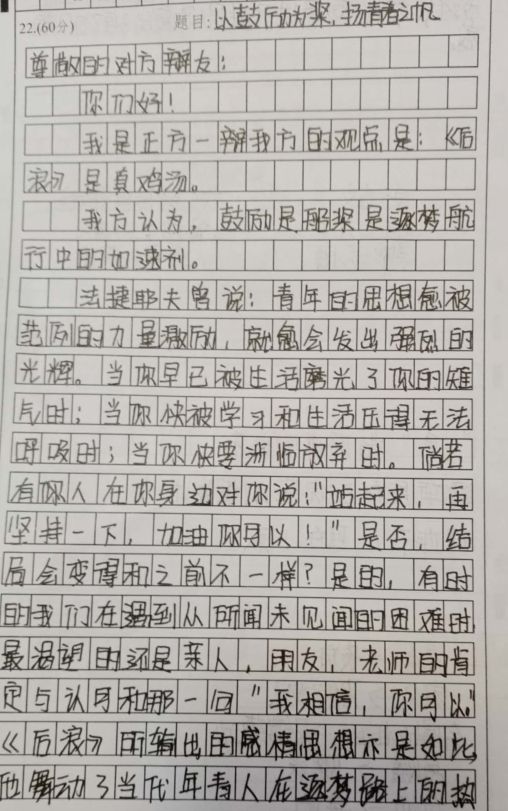 22.(60分) 题目:以鼓励为桨,扬青春之帆
尊敬的对方辩友:
你们好!
我是正方一辩我方的观点是:《后
浪》是真鸡汤。
我方认为,鼓励是船桨是逐梦航
行中的加速剂。
法捷耶夫曾说:青年的思想愈被
范例的力量激励,就愈会发出强烈的
光辉。当你早已被生活磨光了你的雄
气时;当你快被学习和生活压得无法
呼吸时;当你快要濒临放弃时。倘若
有那人在你身边对你说:"站起来,再
坚持一下,加油你可以!"是否,结
局会变得和之前不一样?是的,有时
的我们在遇到从所闻未见闻的困难时,
最渴望的还是亲人,朋友,老师的肯
定与认可和那一句"我相信,你可以"
《后浪》所输出的感情思想亦是如此,
他舞动了当代年青人在逐梦路上的热